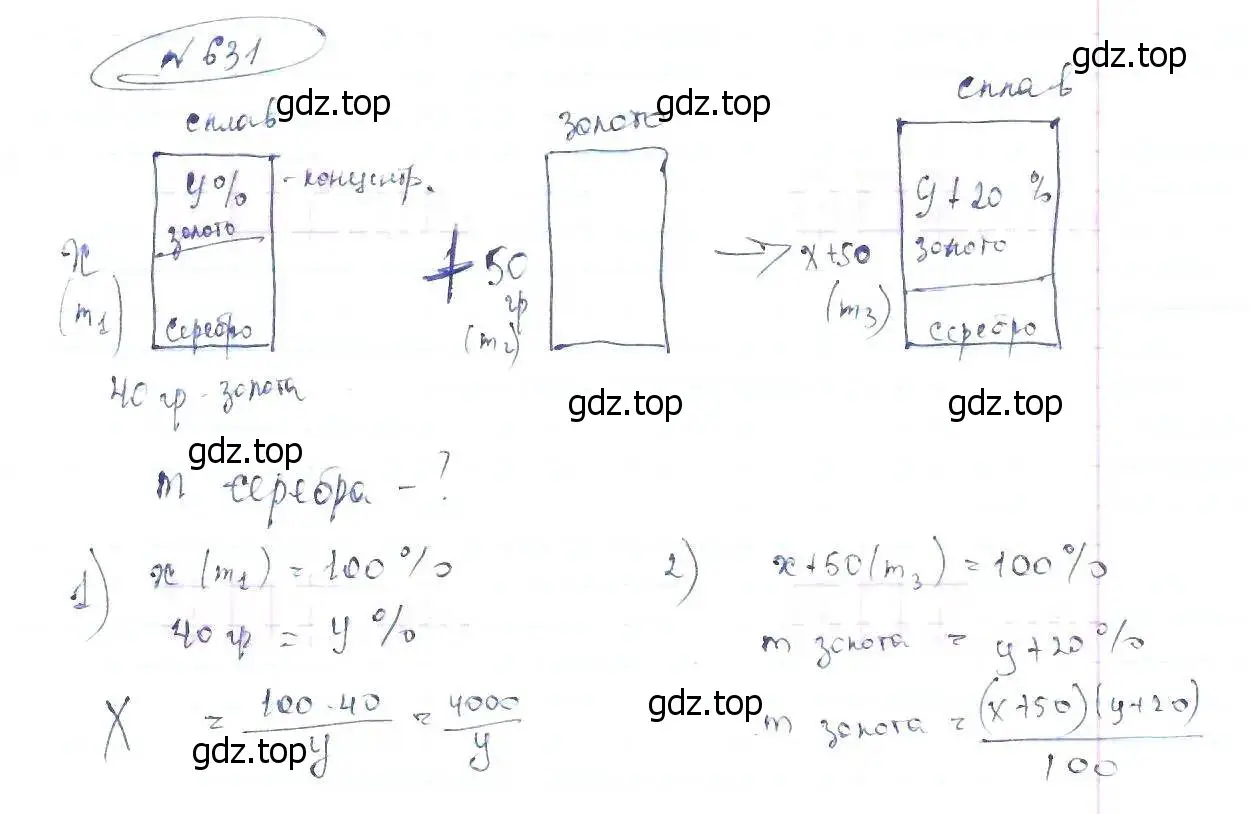 № 631
сплав gdz.top золото gdz.top сплав gdz.top
y% - концентр.
золото
x
(m₁)
серебро
+ 50 гр
(m₂)
→ x+50
(m₃)
y+20 %
золото
серебро
40 гр - золота
gdz.top gdz.top gdz.top
m серебра - ?
1) x (m₁) = 100%
40 гр = y %
X = 100·40 / y = 4000 / y
gdz.top
2) x+50 (m₃) = 100%
m золота = y+20%
gdz.top
m золота = (x+50)(y+20) / 100